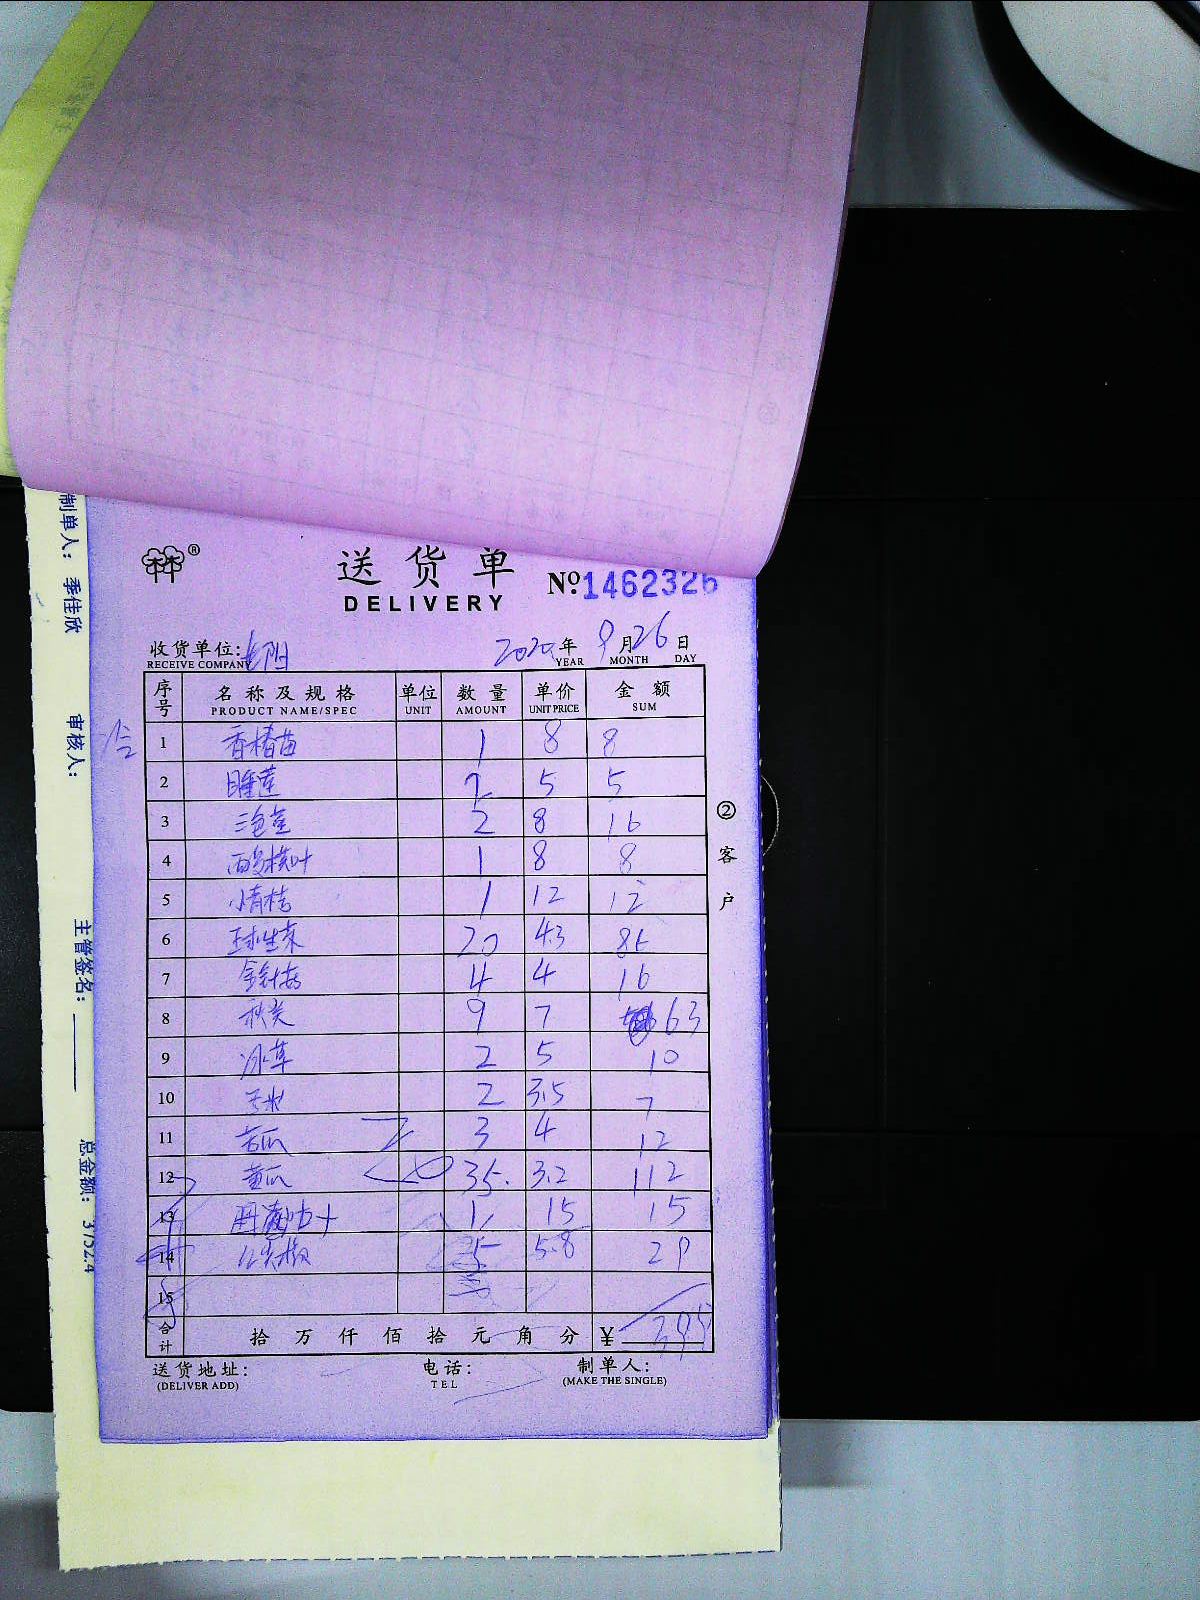 制单人: 季佳欣
审核人:
主管签名:
总金额: 3752.4
®
送货单
DELIVERY
№:1462326
收货单位:
RECEIVE COMPANY
2020年 9月26日
YEAR MONTH DAY
序号 名称及规格 单位 数量 单价 金额
PRODUCT NAME/SPEC UNIT AMOUNT UNIT PRICE SUM
1 香椿苗 1 8 8
2 睡莲 1 5 5
3 三色堇 2 8 16
4 酸模叶 1 8 8
5 小青桔 1 12 12
6 球生菜 20 4.3 86
7 金针菇 4 4 16
8 秋葵 9 7 63
9 冰草 2 5 10
10 玉米 2 3.5 7
11 苦瓜 3 4 12
12 黄瓜 35 3.2 112
13 1 15 15
14 尖椒 5 5.8 29
15
合计 拾 万 仟 佰 拾 元 角 分 ¥
送货地址:
(DELIVER ADD)
电话:
TEL
制单人:
(MAKE THE SINGLE)
② 客户